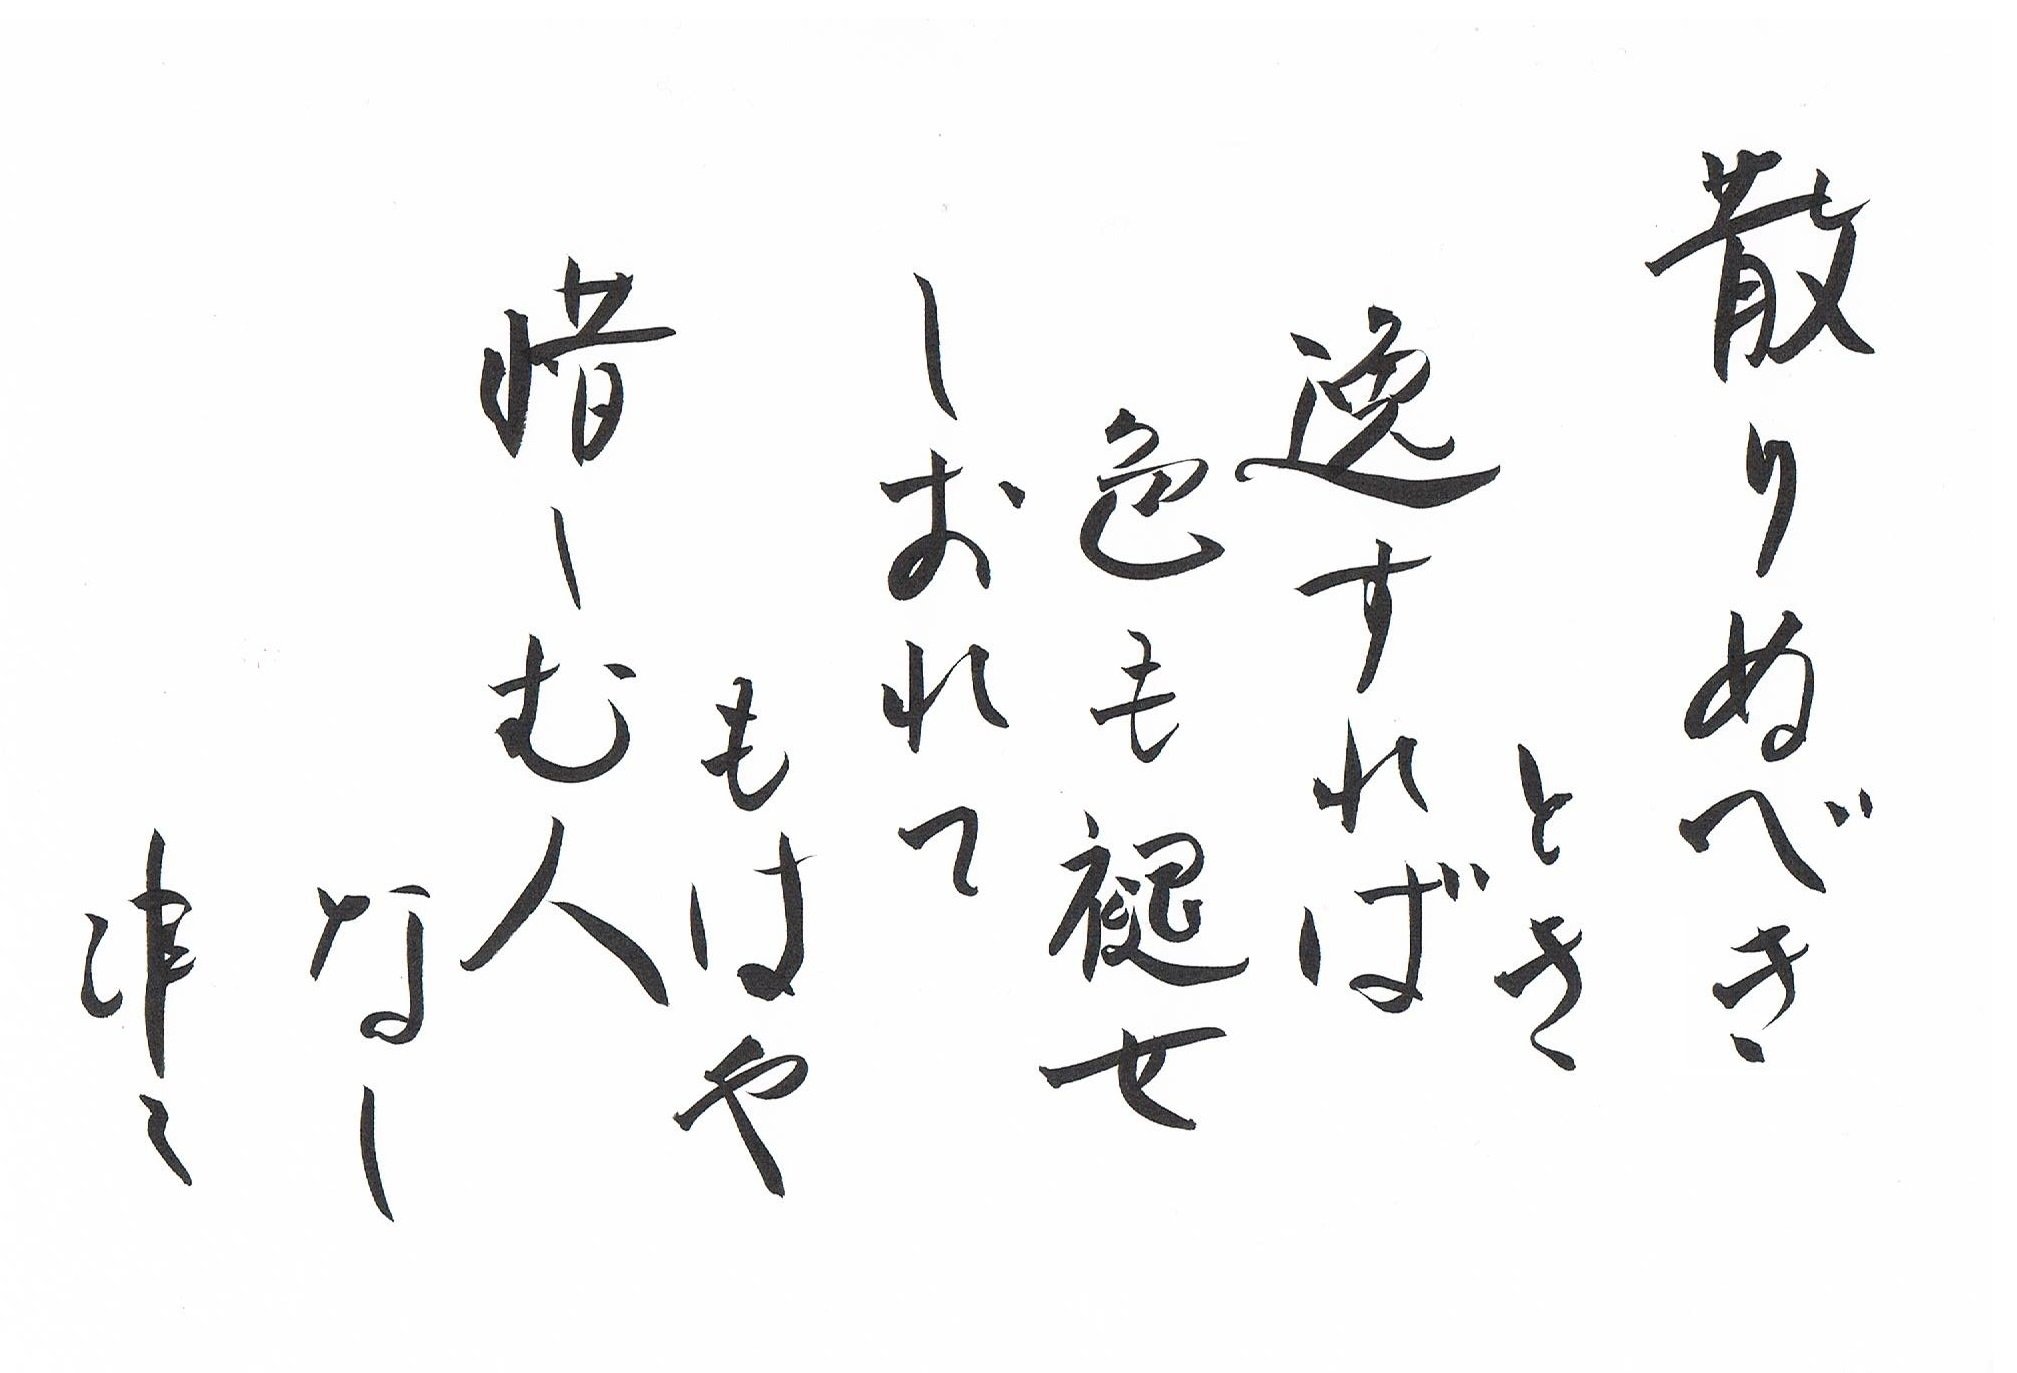 散りぬべき
とき
逸すれば
色も褪せ
しおれて
もはや
惜しむ人
なし